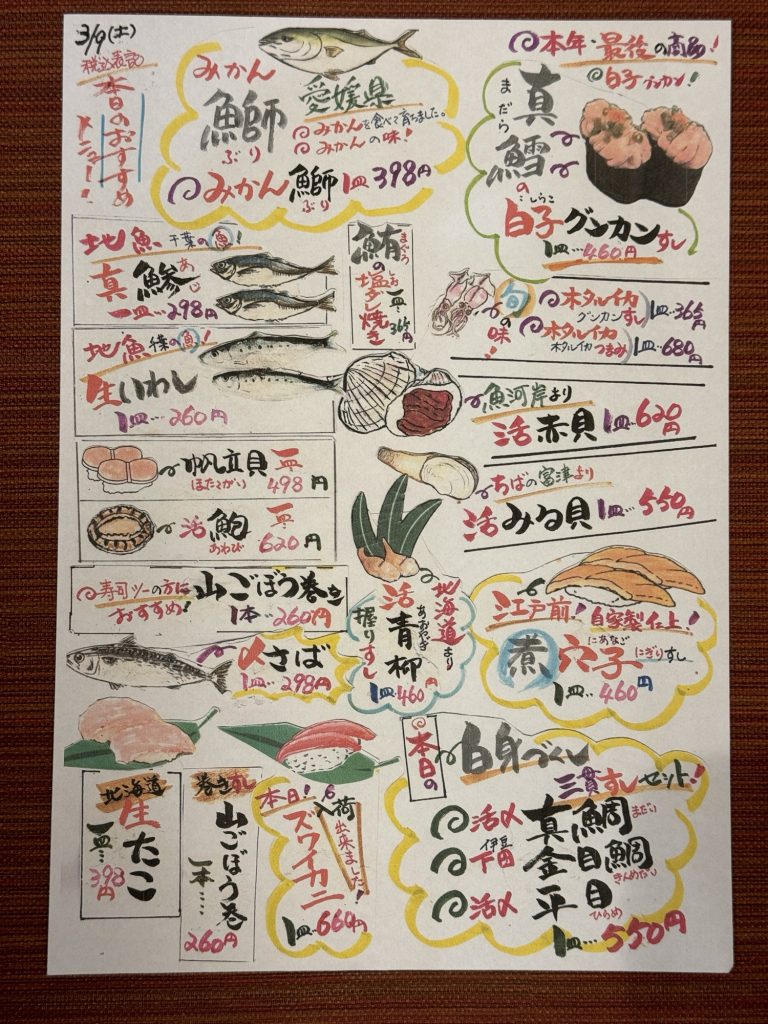 3/9(土)
税込表記
本日のおすすめ
メニュー!
みかん
鰤
ぶり
愛媛県
みかんを食べて育ちました。
みかんの味!
みかん鰤 1皿 398円
ぶり
本年・最後の商品!
白子グンカン!
まだら
真鱈の
しらこ
白子グンカンすし
1皿…460円
地魚 千葉の魚!
真鯵
あじ
一皿…298円
地魚 千葉の魚!
生いわし
1皿…260円
まぐろ
鮪の塩ダレ焼き
しお
一皿…365円
旬の味!
ホタルイカ
グンカンすし 1皿…365円
ホタルイカ
ホタルイカつまみ 1皿…680円
魚河岸より
活赤貝 1皿…620円
ちばの富津より
活みる貝 1皿…550円
帆立貝 一皿
ほたてがい 498円
活鮑 一皿
あわび 620円
寿司ツーの方に
おすすめ!
山ごぼう巻き
1本…260円
〆さば
1皿…298円
北海道より
活青柳
あおやぎ
握りすし
1皿…460円
江戸前! 自家製仕上!
にあなご
煮穴子 にぎりすし
1皿…460円
北海道
生たこ
一皿…
398円
巻きすし
山ごぼう巻
一本…
260円
本日!
入荷
出来ました!
ズワイカニ
1皿…660円
本日の
白身づくし
三貫すしセット!
活〆 真鯛 まだい
伊豆
下田 金目鯛
きんめだい
活〆 平目
ひらめ
1皿…550円